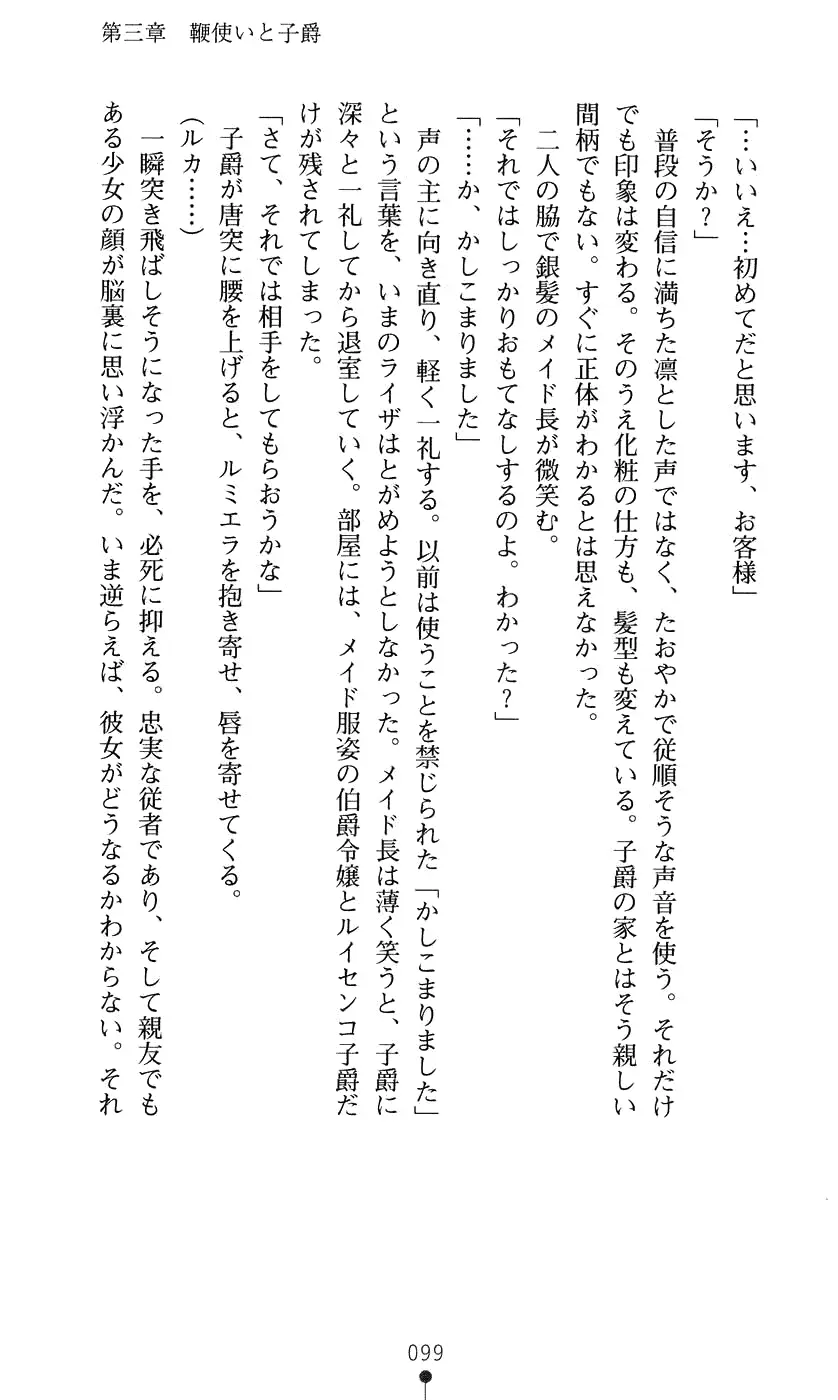 第三章　鞭使いと子爵
「…いいえ…初めてだと思います、お客様」
「そうか？」
　普段の自信に満ちた凛とした声ではなく、たおやかで従順そうな声音を使う。それだけ
でも印象は変わる。そのうえ化粧の仕方も、髪型も変えている。子爵の家とはそう親しい
間柄でもない。すぐに正体がわかるとは思えなかった。
　二人の脇で銀髪のメイド長が微笑む。
「それではしっかりおもてなしするのよ。わかった？」
「……か、かしこまりました」
　声の主に向き直り、軽く一礼する。以前は使うことを禁じられた「かしこまりました」
という言葉を、いまのライザはとがめようとしなかった。メイド長は薄く笑うと、子爵に
深々と一礼してから退室していく。部屋には、メイド服姿の伯爵令嬢とルイセンコ子爵だ
けが残されてしまった。
「さて、それでは相手をしてもらおうかな」
　子爵が唐突に腰を上げると、ルミエラを抱き寄せ、唇を寄せてくる。
（ルカ……）
　一瞬突き飛ばしそうになった手を、必死に抑える。忠実な従者であり、そして親友でも
ある少女の顔が脳裏に思い浮かんだ。いま逆らえば、彼女がどうなるかわからない。それ
099